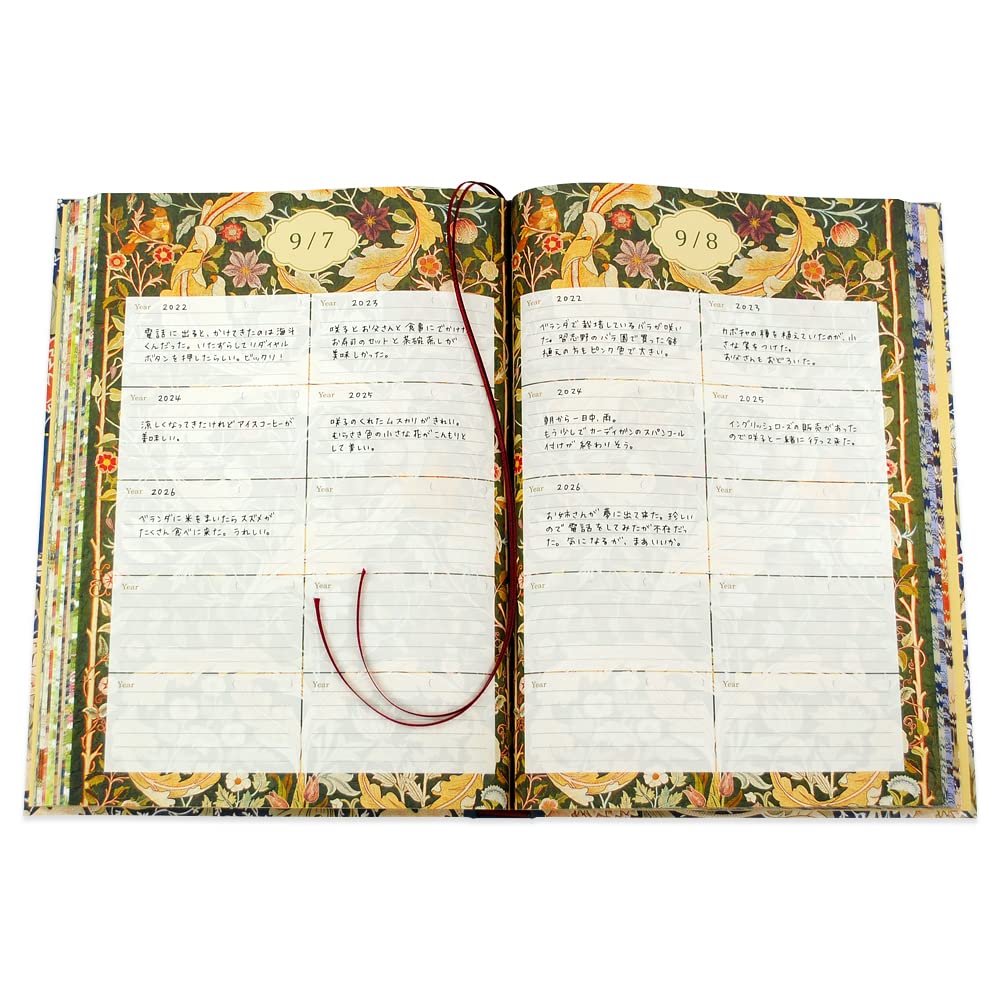 9/7
Year 2022
電話に出ると、かけてきたのは海斗
くんだった。いたずらしてリダイヤル
ボタンを押したらしい。ビックリ!
Year 2023
咲子とお父さんと食事にでかけた
お寿司のセットと茶碗蒸しが
美味しかった。
Year 2024
涼しくなってきたけれどアイスコーヒーが
美味しい。
Year 2025
咲子のくれたムスカリがきれい。
むらさき色の小さな花がこんもりと
して美しい。
Year 2026
ベランダに米をまいたらスズメが
たくさん食べに来た。うれしい。
Year
Year
Year
Year
Year
9/8
Year 2022
ベランダで栽培しているバラが咲い
た。習志野のバラ園で買った鉢
植えの方もピンク色で大きい。
Year 2023
カボチャの種を植えていたのが、小
さな実をつけた。
お父さんもおどろいた。
Year 2024
朝から一日中、雨。
もう少しでカーディガンのスパンコール
付けが終わりそう。
Year 2025
イングリッシュローズの販売があった
ので咲子と一緒に行って来た。
Year 2026
お姉さんが夢に出て来た。珍しい
ので電話をしてみたが不在だっ
た。気になるが、まあいいか。
Year
Year
Year
Year
Year